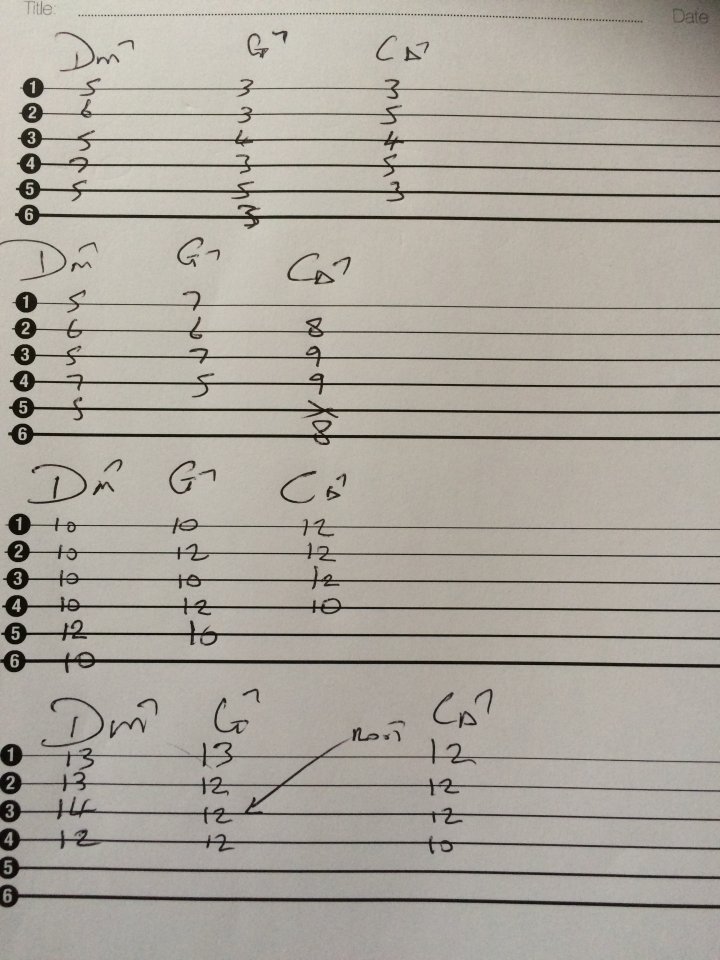 Title: Date
Dm7 G7 C△7
1 5 3 3
2 6 3 5
3 5 4 4
4 7 3 5
5 5 5 3
6 3
Dm7 G7 C△7
1 5 7
2 6 6 8
3 5 7 9
4 7 5 9
5 5 X
6 8
Dm7 G7 C△7
1 10 10 12
2 10 12 12
3 10 10 12
4 10 12 10
5 12 10
6 10
Dm7 G7 C△7
ROOT
1 13 13 12
2 13 12 12
3 14 12 12
4 12 12 10
5
6